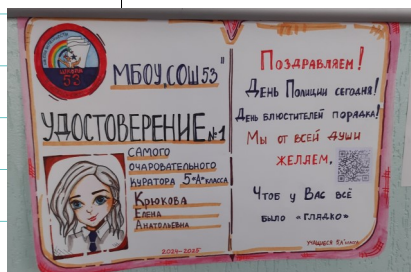 ШКОЛА
53
МБОУ "СОШ 53"
УДОСТОВЕРЕНИЕ №1
САМОГО
ОЧАРОВАТЕЛЬНОГО
КУРАТОРА 5"А" КЛАССА
КРЮКОВА
ЕЛЕНА
АНАТОЛЬЕВНА
2024-2025
ПОЗДРАВЛЯЕМ!
ДЕНЬ ПОЛИЦИИ СЕГОДНЯ!
ДЕНЬ БЛЮСТИТЕЛЕЙ ПОРЯДКА!
МЫ ОТ ВСЕЙ ДУШИ
ЖЕЛАЕМ,
ЧТОБ У ВАС ВСЁ
БЫЛО «ГЛАДКО»
УЧАЩИЕСЯ